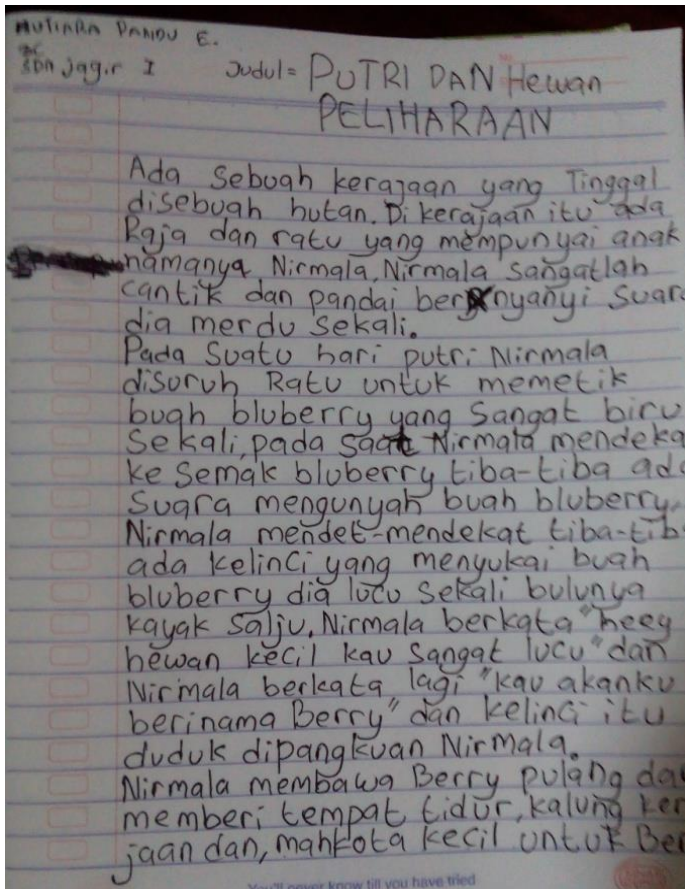 MUTIARA PANDU E.
SDN Jagir I
Judul = PUTRI DAN Hewan
PELIHARAAN
Ada Sebuah kerajaan yang Tinggal
disebuah hutan. Di kerajaan itu ada
Raja dan ratu yang mempunyai anak
namanya Nirmala, Nirmala Sangatlah
cantik dan pandai bernyanyi Suara
dia merdu Sekali.
Pada Suatu hari putri Nirmala
disuruh Ratu untuk memetik
buah bluberry yang Sangat biru
Sekali, pada saat Nirmala mendeka
ke Semak bluberry tiba-tiba ada
Suara mengunyah buah bluberry,
Nirmala mendet-mendekat tiba-tib
ada kelinci yang menyukai buah
bluberry dia lucu Sekali bulunya
kayak Salju. Nirmala berkata "heey
hewan kecil kau Sangat lucu" dan
Nirmala berkata lagi "kau akanku
berinama Berry" dan kelinci itu
duduk dipangkuan Nirmala.
Nirmala membawa Berry pulang da
memberi tempat tidur, kalung ker
jaan dan, mahkota kecil untuk Ber
You'll never know till you have tried